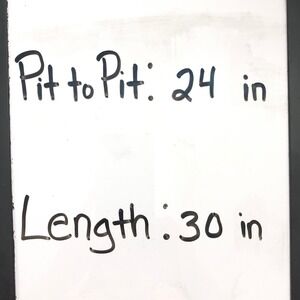 Pit to Pit: 24 in
Length: 30 in